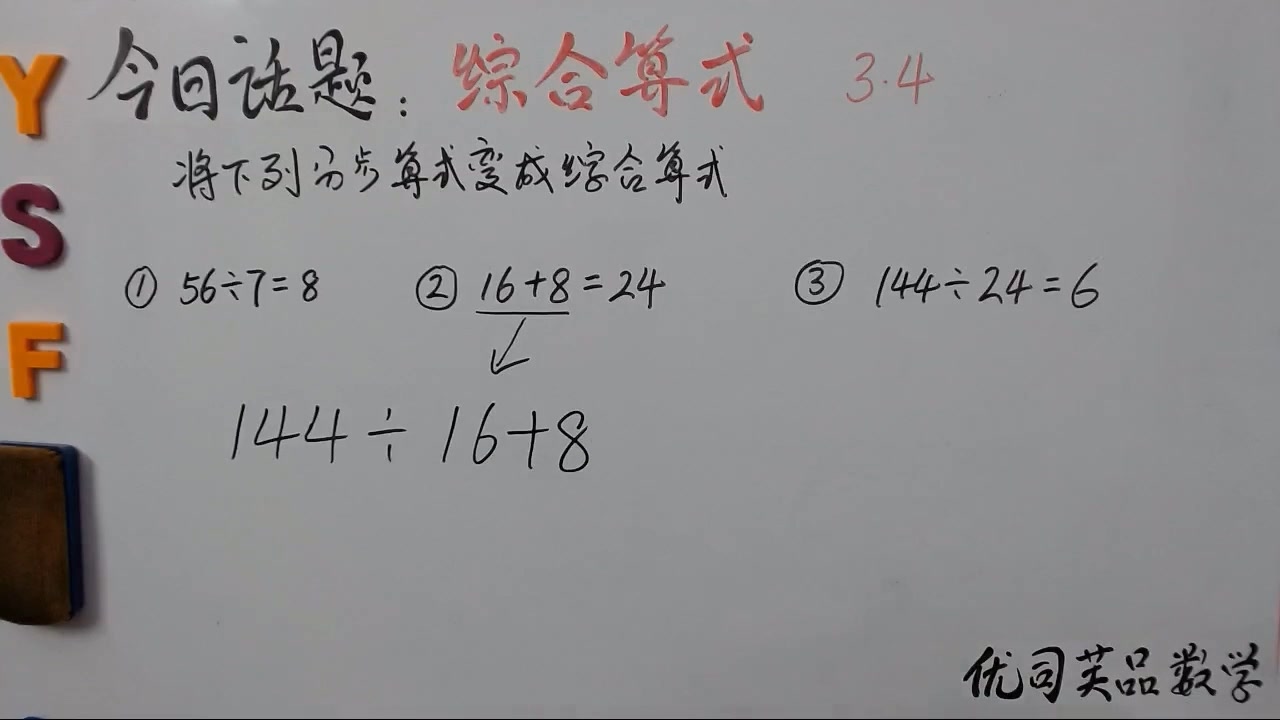 今日话题：综合算式 3.4
将下列分步算式变成综合算式
① 56÷7=8 ② 16+8=24 ③ 144÷24=6
144÷16+8
Y
S
F
优司英品数学